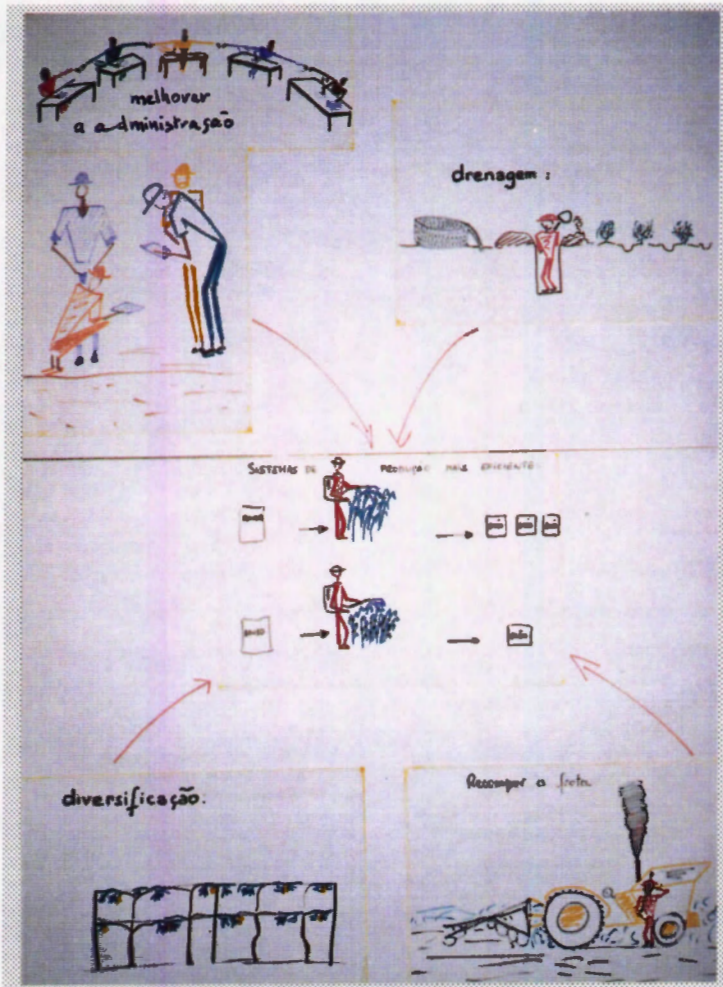 melhorar
a administração
drenagem :
SISTEMAS DE PRODUÇÃO MAIS EFICIENTES
diversificação:
Recompor a frota